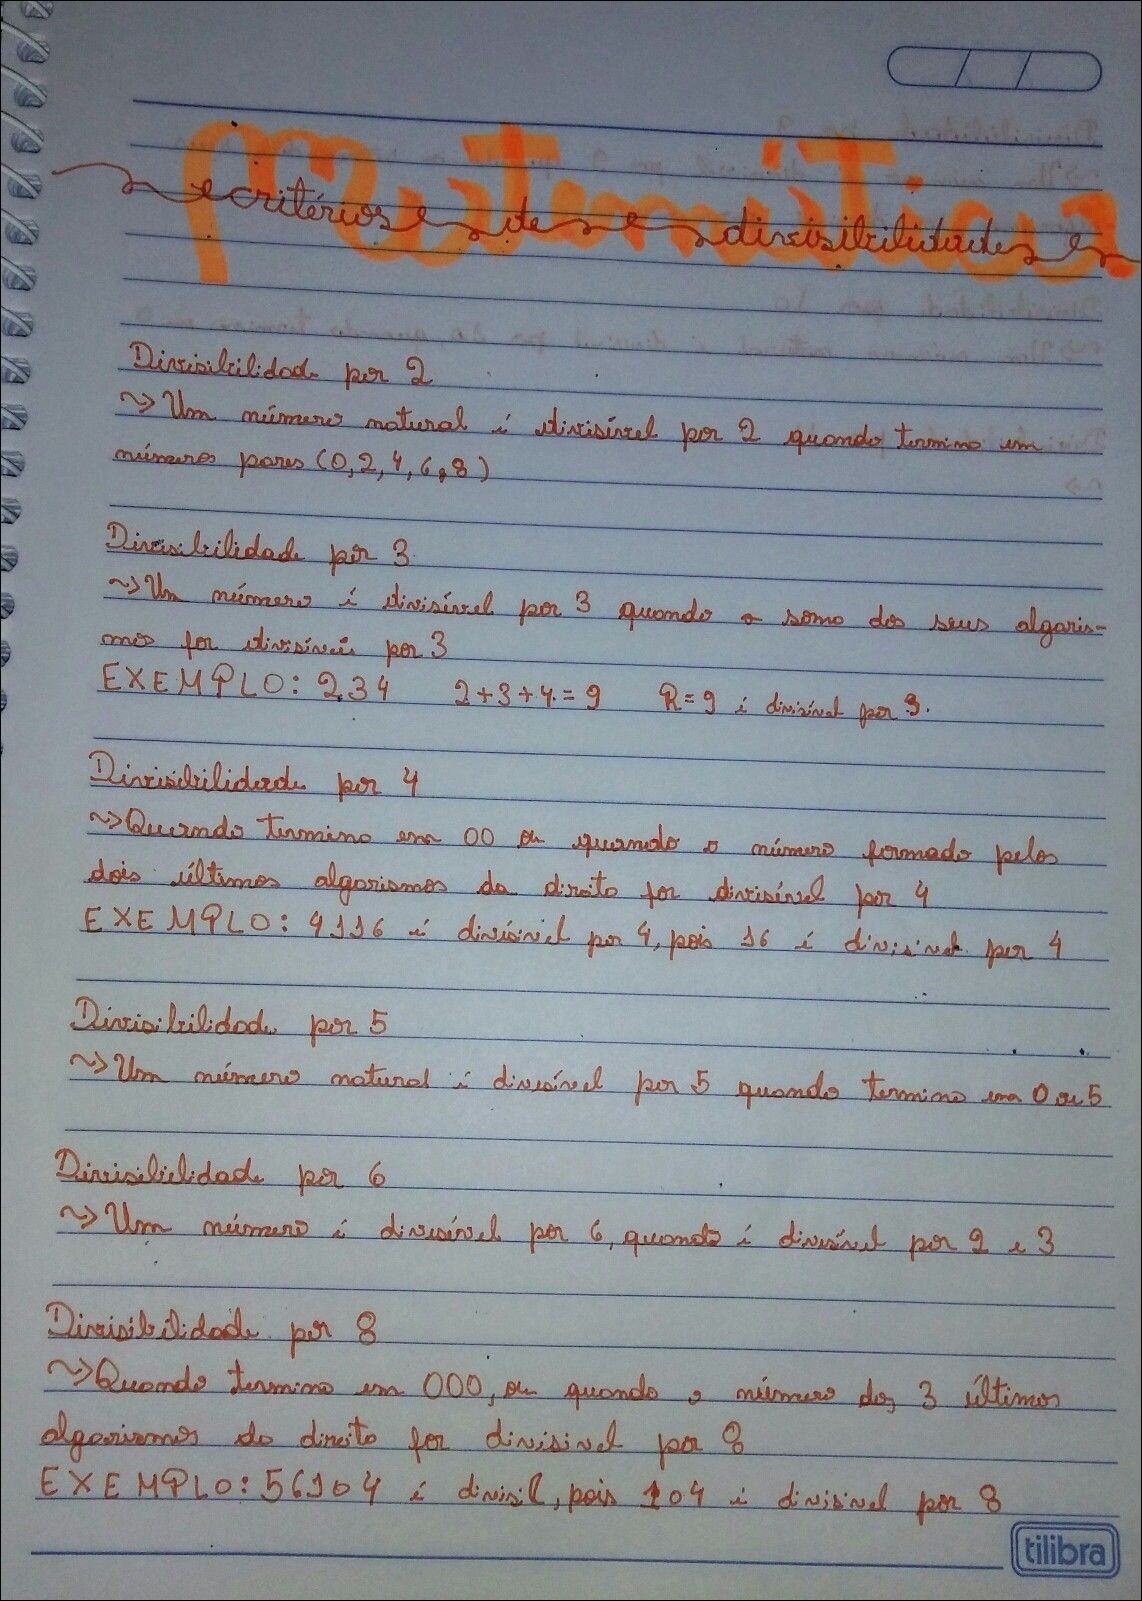 Matemática
critérios de divisibilidades
Divisibilidade por 2
~> Um número natural é divisível por 2 quando termina em
números pares (0, 2, 4, 6, 8)
Divisibilidade por 3
~> Um número é divisível por 3 quando a soma dos seus algaris-
mos for divisíveis por 3
EXEMPLO: 234 2+3+4=9 R=9 é divisível por 3.
Divisibilidade por 4
~> Quando termina em 00 ou quando o número formado pelos
dois últimos algarismos da direita for divisível por 4
EXEMPLO: 4116 é divisível por 4, pois 16 é divisivel por 4
Divisibilidade por 5
~> Um número natural é divisível por 5 quando termina em 0 ou 5
Divisibilidade por 6
~> Um número é divisível por 6, quando é divisível por 2 e 3
Divisibilidade por 8
~> Quando termina em 000, ou quando o número dos 3 últimos
algarismos da direita for divisivel por 8
EXEMPLO: 56104 é divisil, pois 104 é divisivel por 8
tilibra